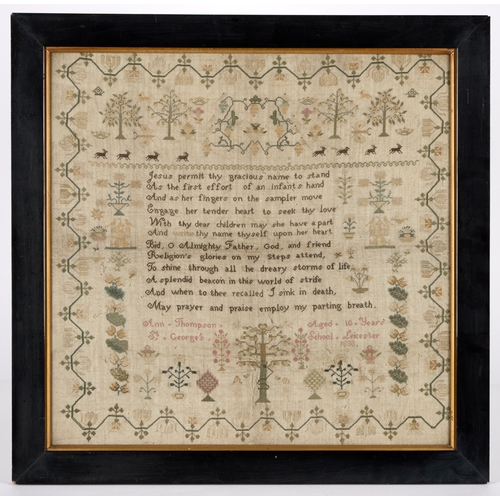 Jesus permit thy gracious name to stand
As the first effort of an infants hand
And as her fingers on the sampler move
Engage her tender heart to seek thy love
With thy dear children may she have a part
And write thy name thyself upon her heart
Bid, O Almighty Father, God, and friend
Religion's glories on my steps attend,
To shine through all he dreary storms of life
A splendid beacon in this world of strife
And when to thee recalled I sink in death,
May prayer and praise employ my parting breath.
Ann Thompson Aged 10 Years
St George's School Leicester